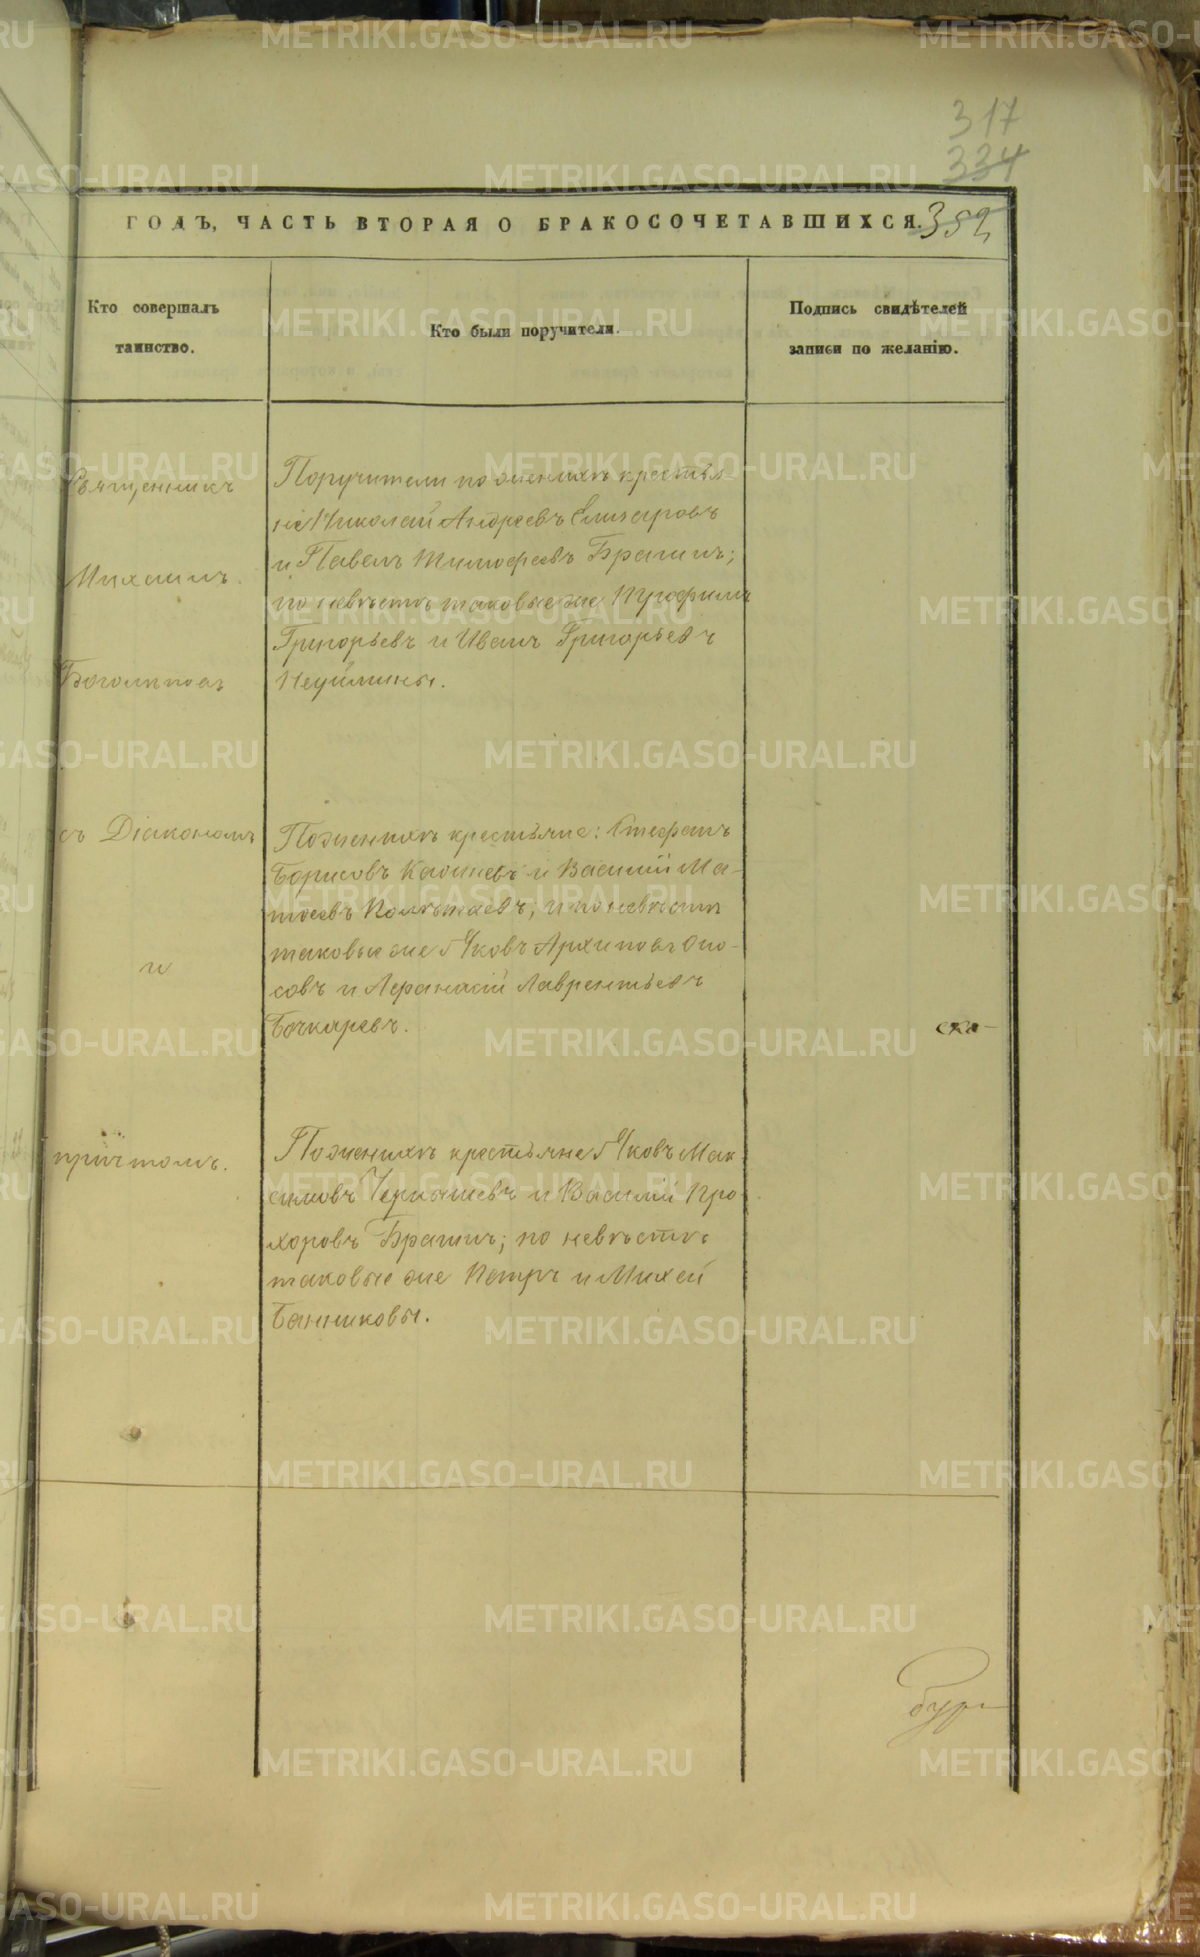 317
334
ГОДЪ, ЧАСТЬ ВТОРАЯ О БРАКОСОЧЕТАВШИХСЯ.
352
Кто совершалъ
таинство.
Кто были поручители.
Подпись свидѣтелей
записи по желанію.
Священникъ
Михаилъ
Боголѣповъ
съ Діакономъ
и
причтомъ.
Поручители по женихѣ крестья-
не Николай Андреевъ Елизаровъ
и Павелъ Тимофеевъ Брагинъ;
по невѣстѣ таковые же Трофимъ
Григорьевъ и Иванъ Григорьевъ
Неуймины.
По женихѣ крестьяне: Стефанъ
Борисовъ и Василій Ма-
твеевъ и по невѣстѣ
таковые же Яковъ Архиповъ
совъ и Афанасій Лаврентьевъ
Бочкаревъ.
По женихѣ крестьяне Яковъ Мак
симовъ Чернышевъ и Василій Про-
хоровъ Брагинъ; по невѣстѣ
таковые же Петръ и Михей
Банниковы.
ска-
METRIKI.GASO-URAL.RU